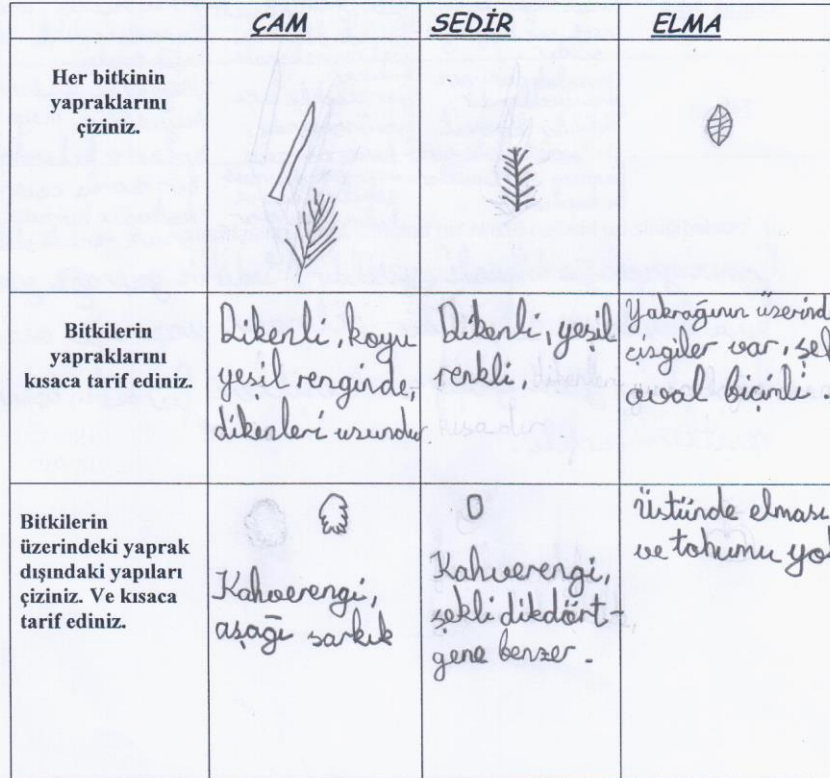 ÇAM
SEDİR
ELMA
Her bitkinin
yapraklarını
çiziniz.
Bitkilerin
yapraklarını
kısaca tarif ediniz.
Dikenli, koyu
yeşil renginde,
dikenleri uzundur
Dikenli, yeşil
renkli,
kısadır
Yakrağının üzerind
çizgiler var, şek
oval biçimli.
Bitkilerin
üzerindeki yaprak
dışındaki yapıları
çiziniz. Ve kısaca
tarif ediniz.
Kahverengi,
aşağı sarkık
Kahverengi,
şekli dikdört-
gene benzer.
Üstünde elması
ve tohumu yok